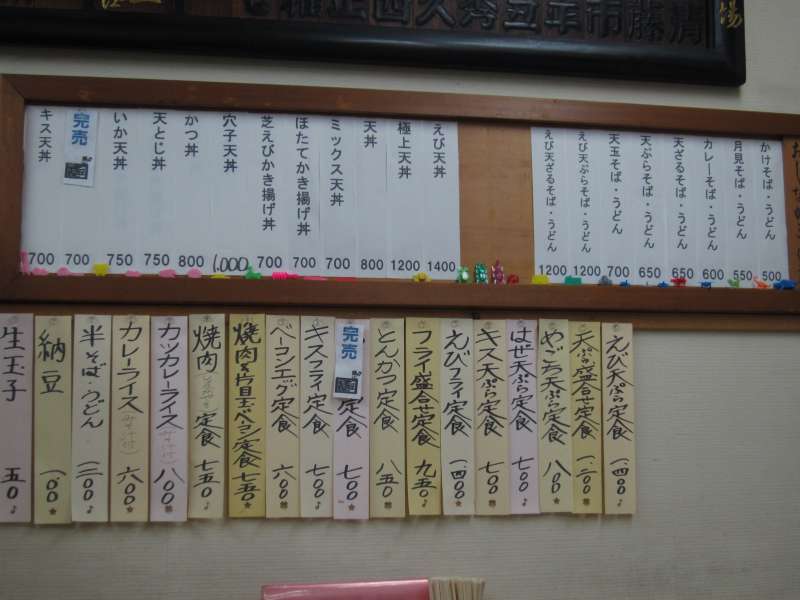 清藤市年五秀久西正稲
場
かけそば・うどん 500
月見そば・うどん 550
カレーそば・うどん 600
天ざるそば・うどん 650
天ぷらそば・うどん 650
天玉そば・うどん 700
えび天ぷらそば・うどん 1200
えび天ざるそば・うどん 1200
えび天丼 1400
極上天丼 1200
天丼 800
ミックス天丼 700
ほたてかき揚げ丼 700
芝えびかき揚げ丼 700
穴子天丼 1,000
かつ丼 800
天とじ丼 750
いか天丼 750
完売 700
キス天丼 700
えび天ぷら定食 一、四〇〇
天ぷら盛合せ定食 一、二〇〇
めごち天ぷら定食 八〇〇
はぜ天ぷら定食 七〇〇
キス天ぷら定食 七〇〇
えびフライ定食 一、四〇〇
フライ盛合せ定食 九五〇
とんかつ定食 八五〇
完売 定食 七〇〇
キスフライ定食 七〇〇
ベーコンエッグ定食 六〇〇
焼肉&片目玉ベーコン定食 七五〇
焼肉 定食 七五〇
カツカレーライス 八〇〇
カレーライス 六〇〇
半そば・うどん
納豆 一〇〇
生玉子 五〇